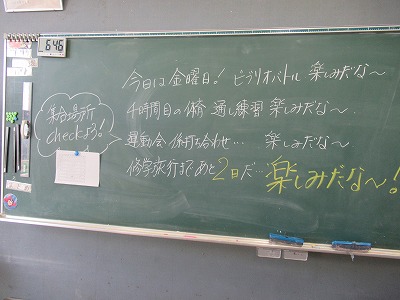 6:46
集合場所
checkよろ!
今日は金曜日! ビブリオバトル 楽しみだな〜
4時間目の体育 通し練習 楽しみだな〜.
運動会 係打ち合わせ… 楽しみだな〜
修学旅行まであと2日だ…楽しみだな〜!